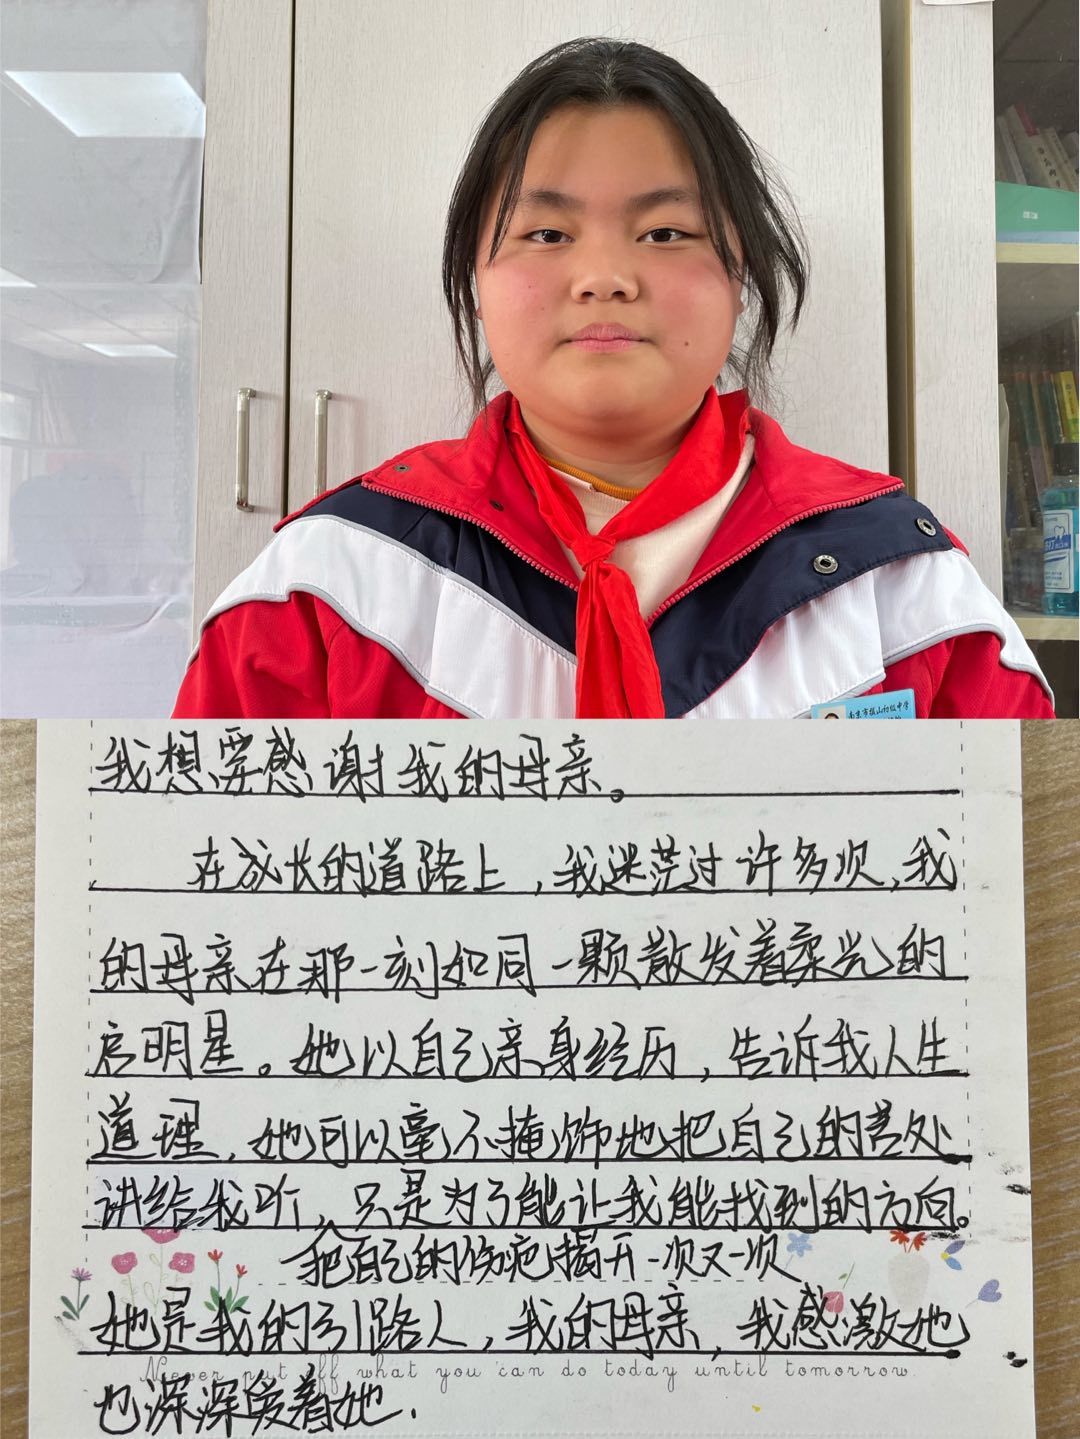 南京市拔山初级中学
我想要感谢我的母亲。
在成长的道路上，我迷茫过许多次，我
的母亲在那一刻如同一颗散发着柔光的
启明星。她以自己亲身经历，告诉我人生
道理，她可以毫不掩饰地把自己的苦处
讲给我听，只是为了能让我能找到的方向。
把自己的伤疤揭开一次又一次
她是我的引路人，我的母亲，我感激她
Never put off what you can do today until tomorrow.
也深深爱着她.